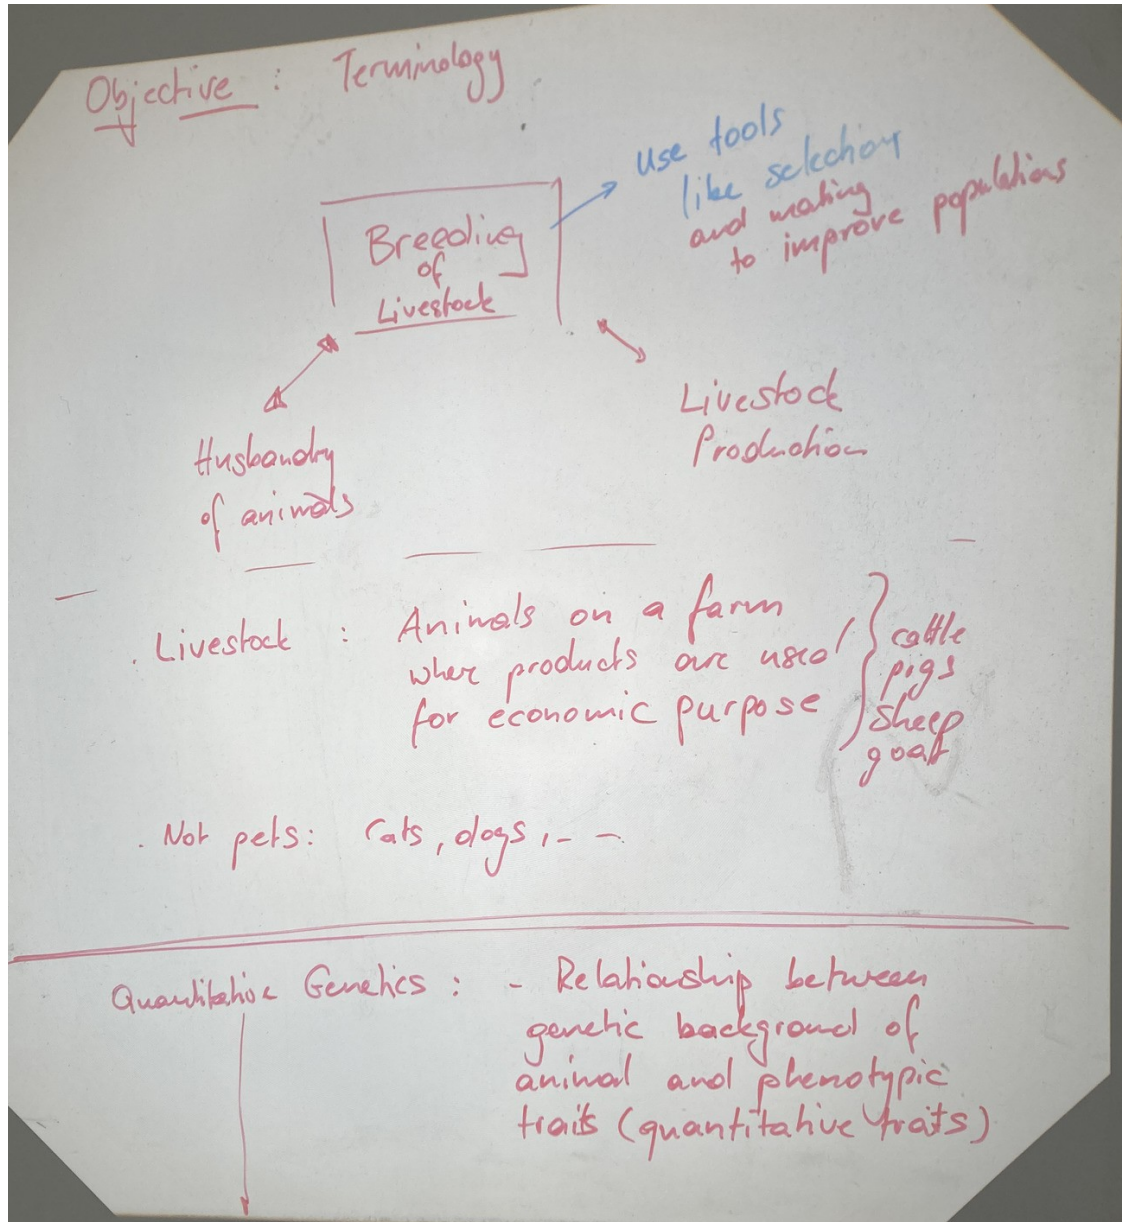 Objective : Terminology
use tools
like selection
and mating
to improve populations
Breeding
of
Livestock
Livestock
Production
Husbandry
of animals
. Livestock : Animals on a farm
where products are used
for economic purpose
cattle
pigs
sheep
goat
. Not pets: Cats, dogs, - -
Quantitative Genetics : - Relationship between
genetic background of
animal and phenotypic
traits (quantitative traits)